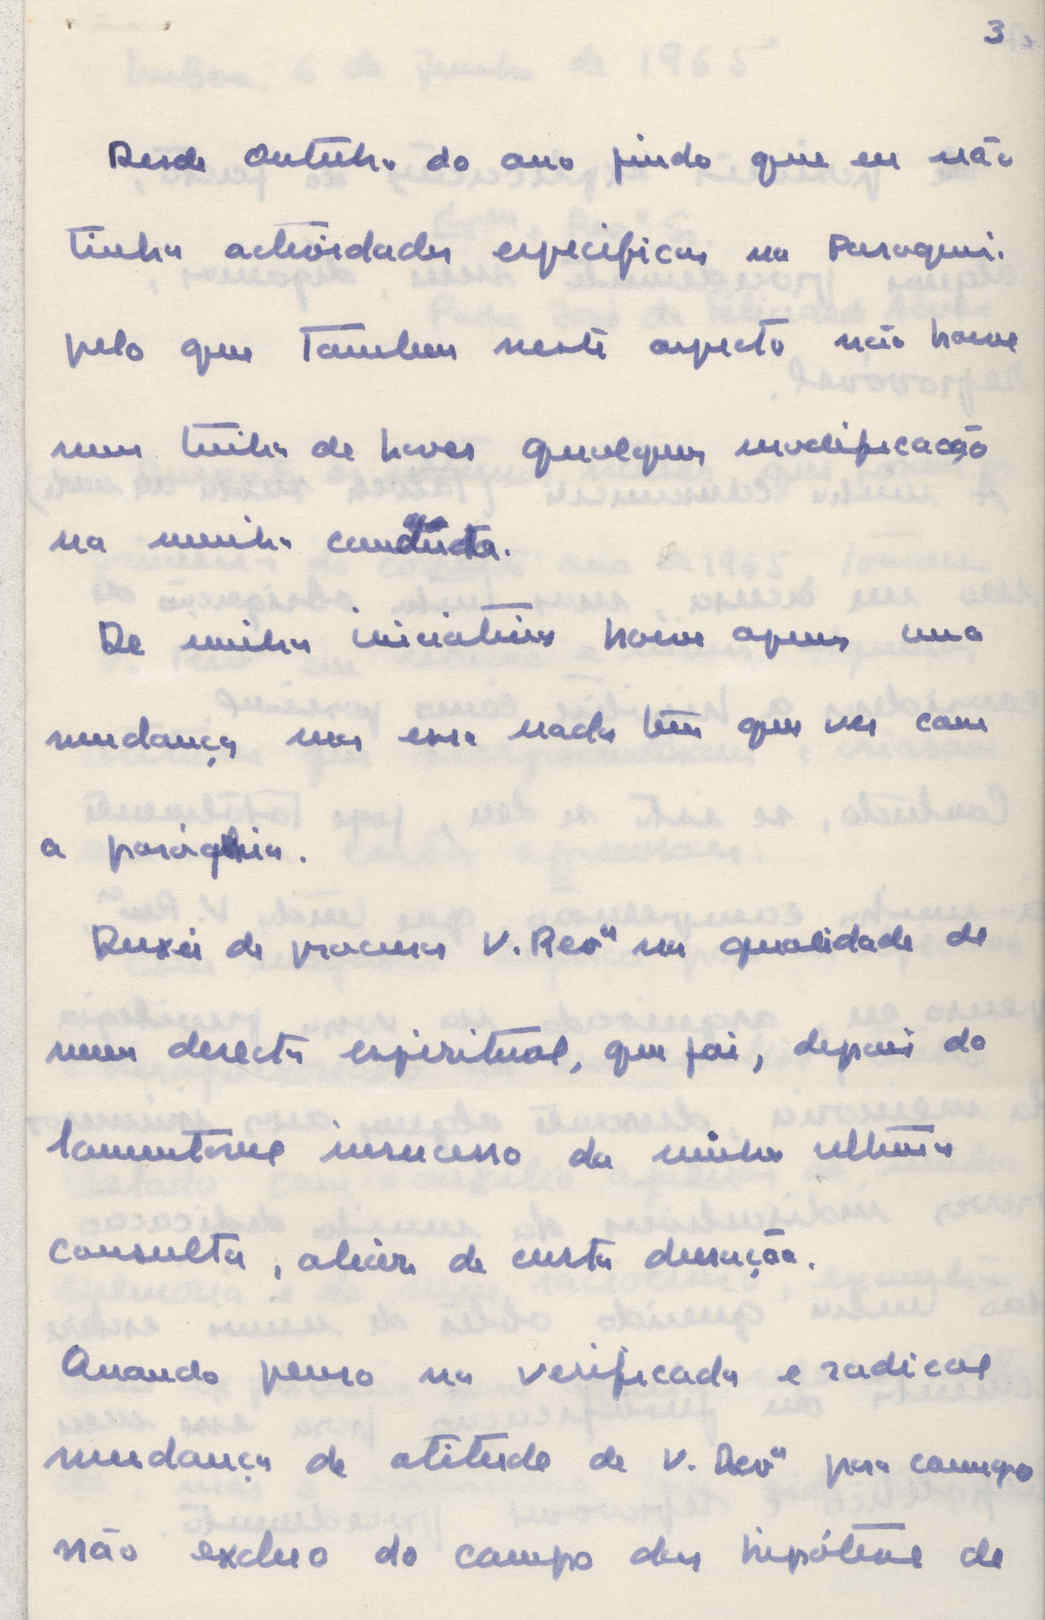 3
Desde Outubro do ano findo que eu não
tinha actividades especificas na Paroqui.
pelo que tambem neste aspecto não houve
nem tinha de haver qualquer modificacção
na minha conducta.
De minha iniciativa houve apenas uma
mudança mas essa nada tem que ver com
a paróquia.
Deixei de procurar V. Revª na qualidade de
meu director espiritual, que foi, depois do
lamentavel insucesso da minha ultima
consulta, aliás de curta duração.
Quando penso na verificada e radical
mudança de atitude de V. Revª para comigo
não excluo do campo das hipótese de